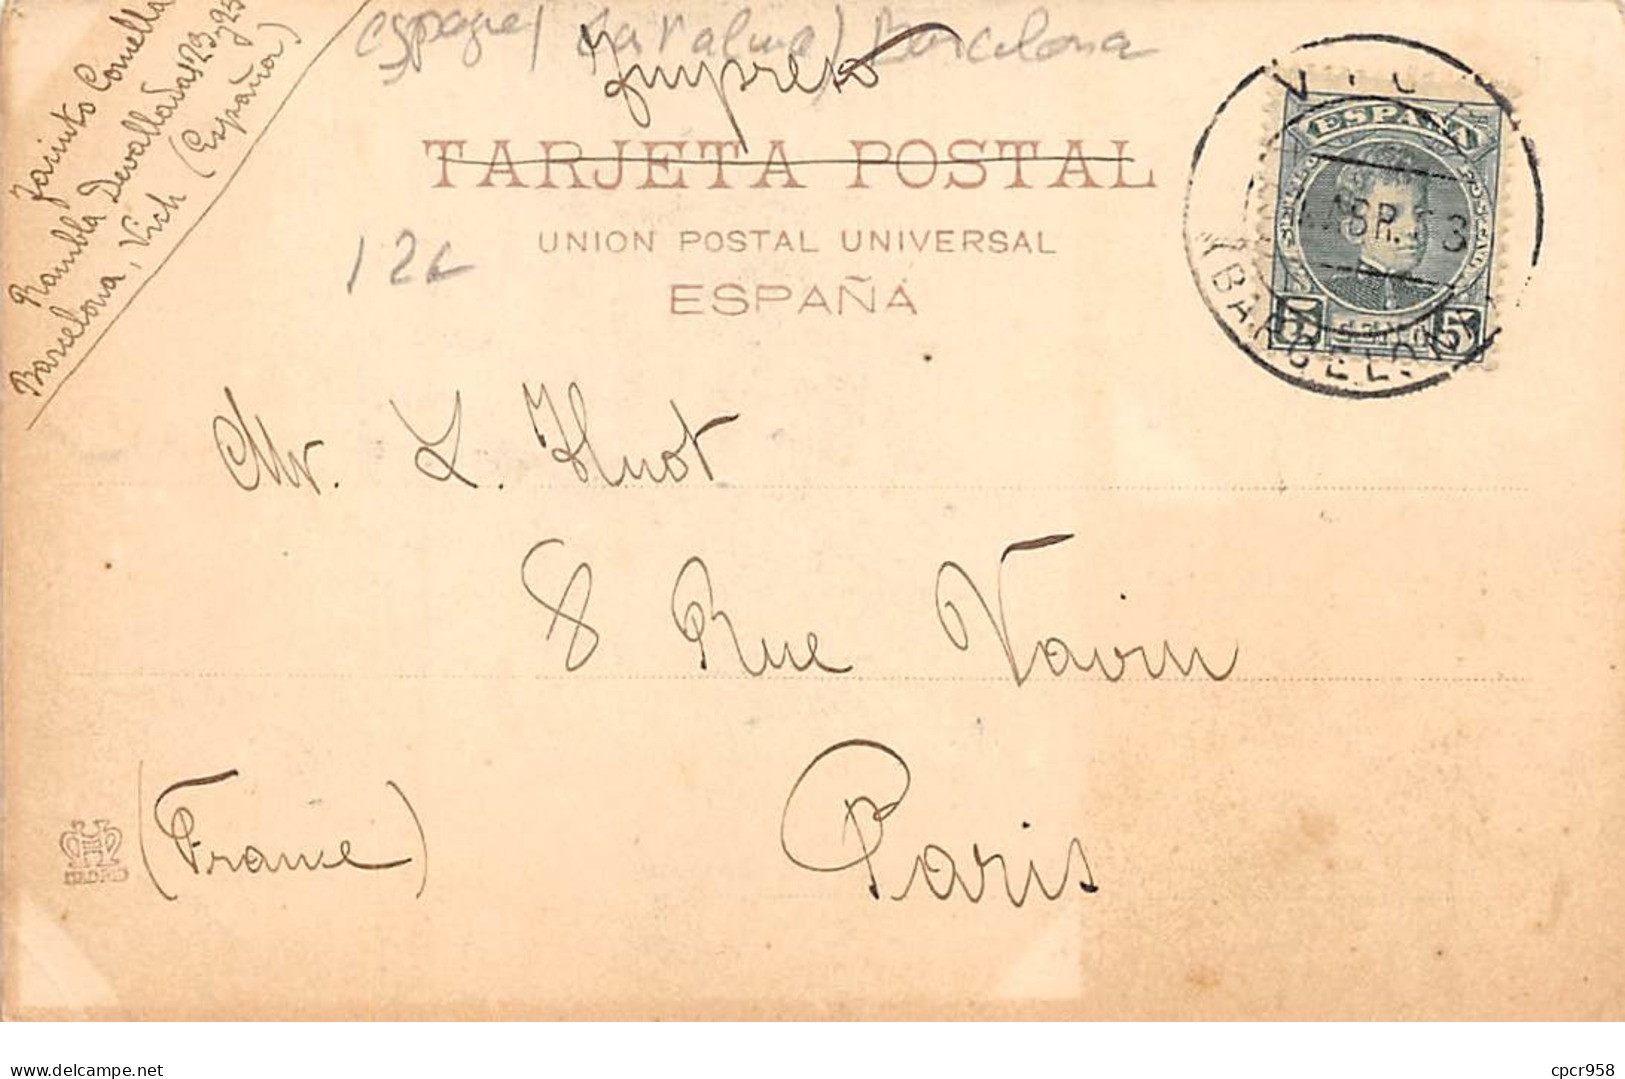 Jacinto Comella
Rambla Devallada, 23 y 25
Barcelona, Vich (España)
espagne / Las Palma / Barcelona
Impreso
TARJETA POSTAL
UNION POSTAL UNIVERSAL
ESPAÑA
12c
ESPAÑA
(BARCELONA)
Mr. L. Huot
8 Rue Vavin
Paris
(France)
MADRID
cpcr958